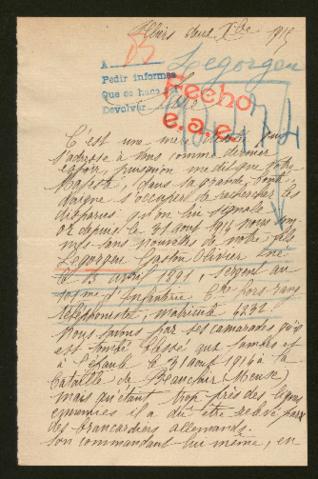 1915
A
Legorgeu
Pedir informes
Que se haga
Devolver
Fecho
e.a.e.
C'est une mère qui
s'adresse à vous comme dernier
espoir, puisqu'on me dit que Votre
Majesté, dans sa grande bonté
daigne s'occuper de rechercher les
disparus qu'on lui signale
or depuis le 31 août 1914 nous som-
mes sans nouvelles de notre fils
Legorgeu Gaston Olivier né
le 13 avril 1891, sergent au
d'Infanterie Cie hors rang
téléphoniste, matricule 4232
Nous savons par ses camarades qu'il
est tombé blessé aux jambes et
à l'épaule le 31 août 1914 à la
bataille de (Meuse)
mais qu'étant trop près des lignes
ennemies il a dû être relevé par
des brancardiers allemands.
Son commandant lui même, en